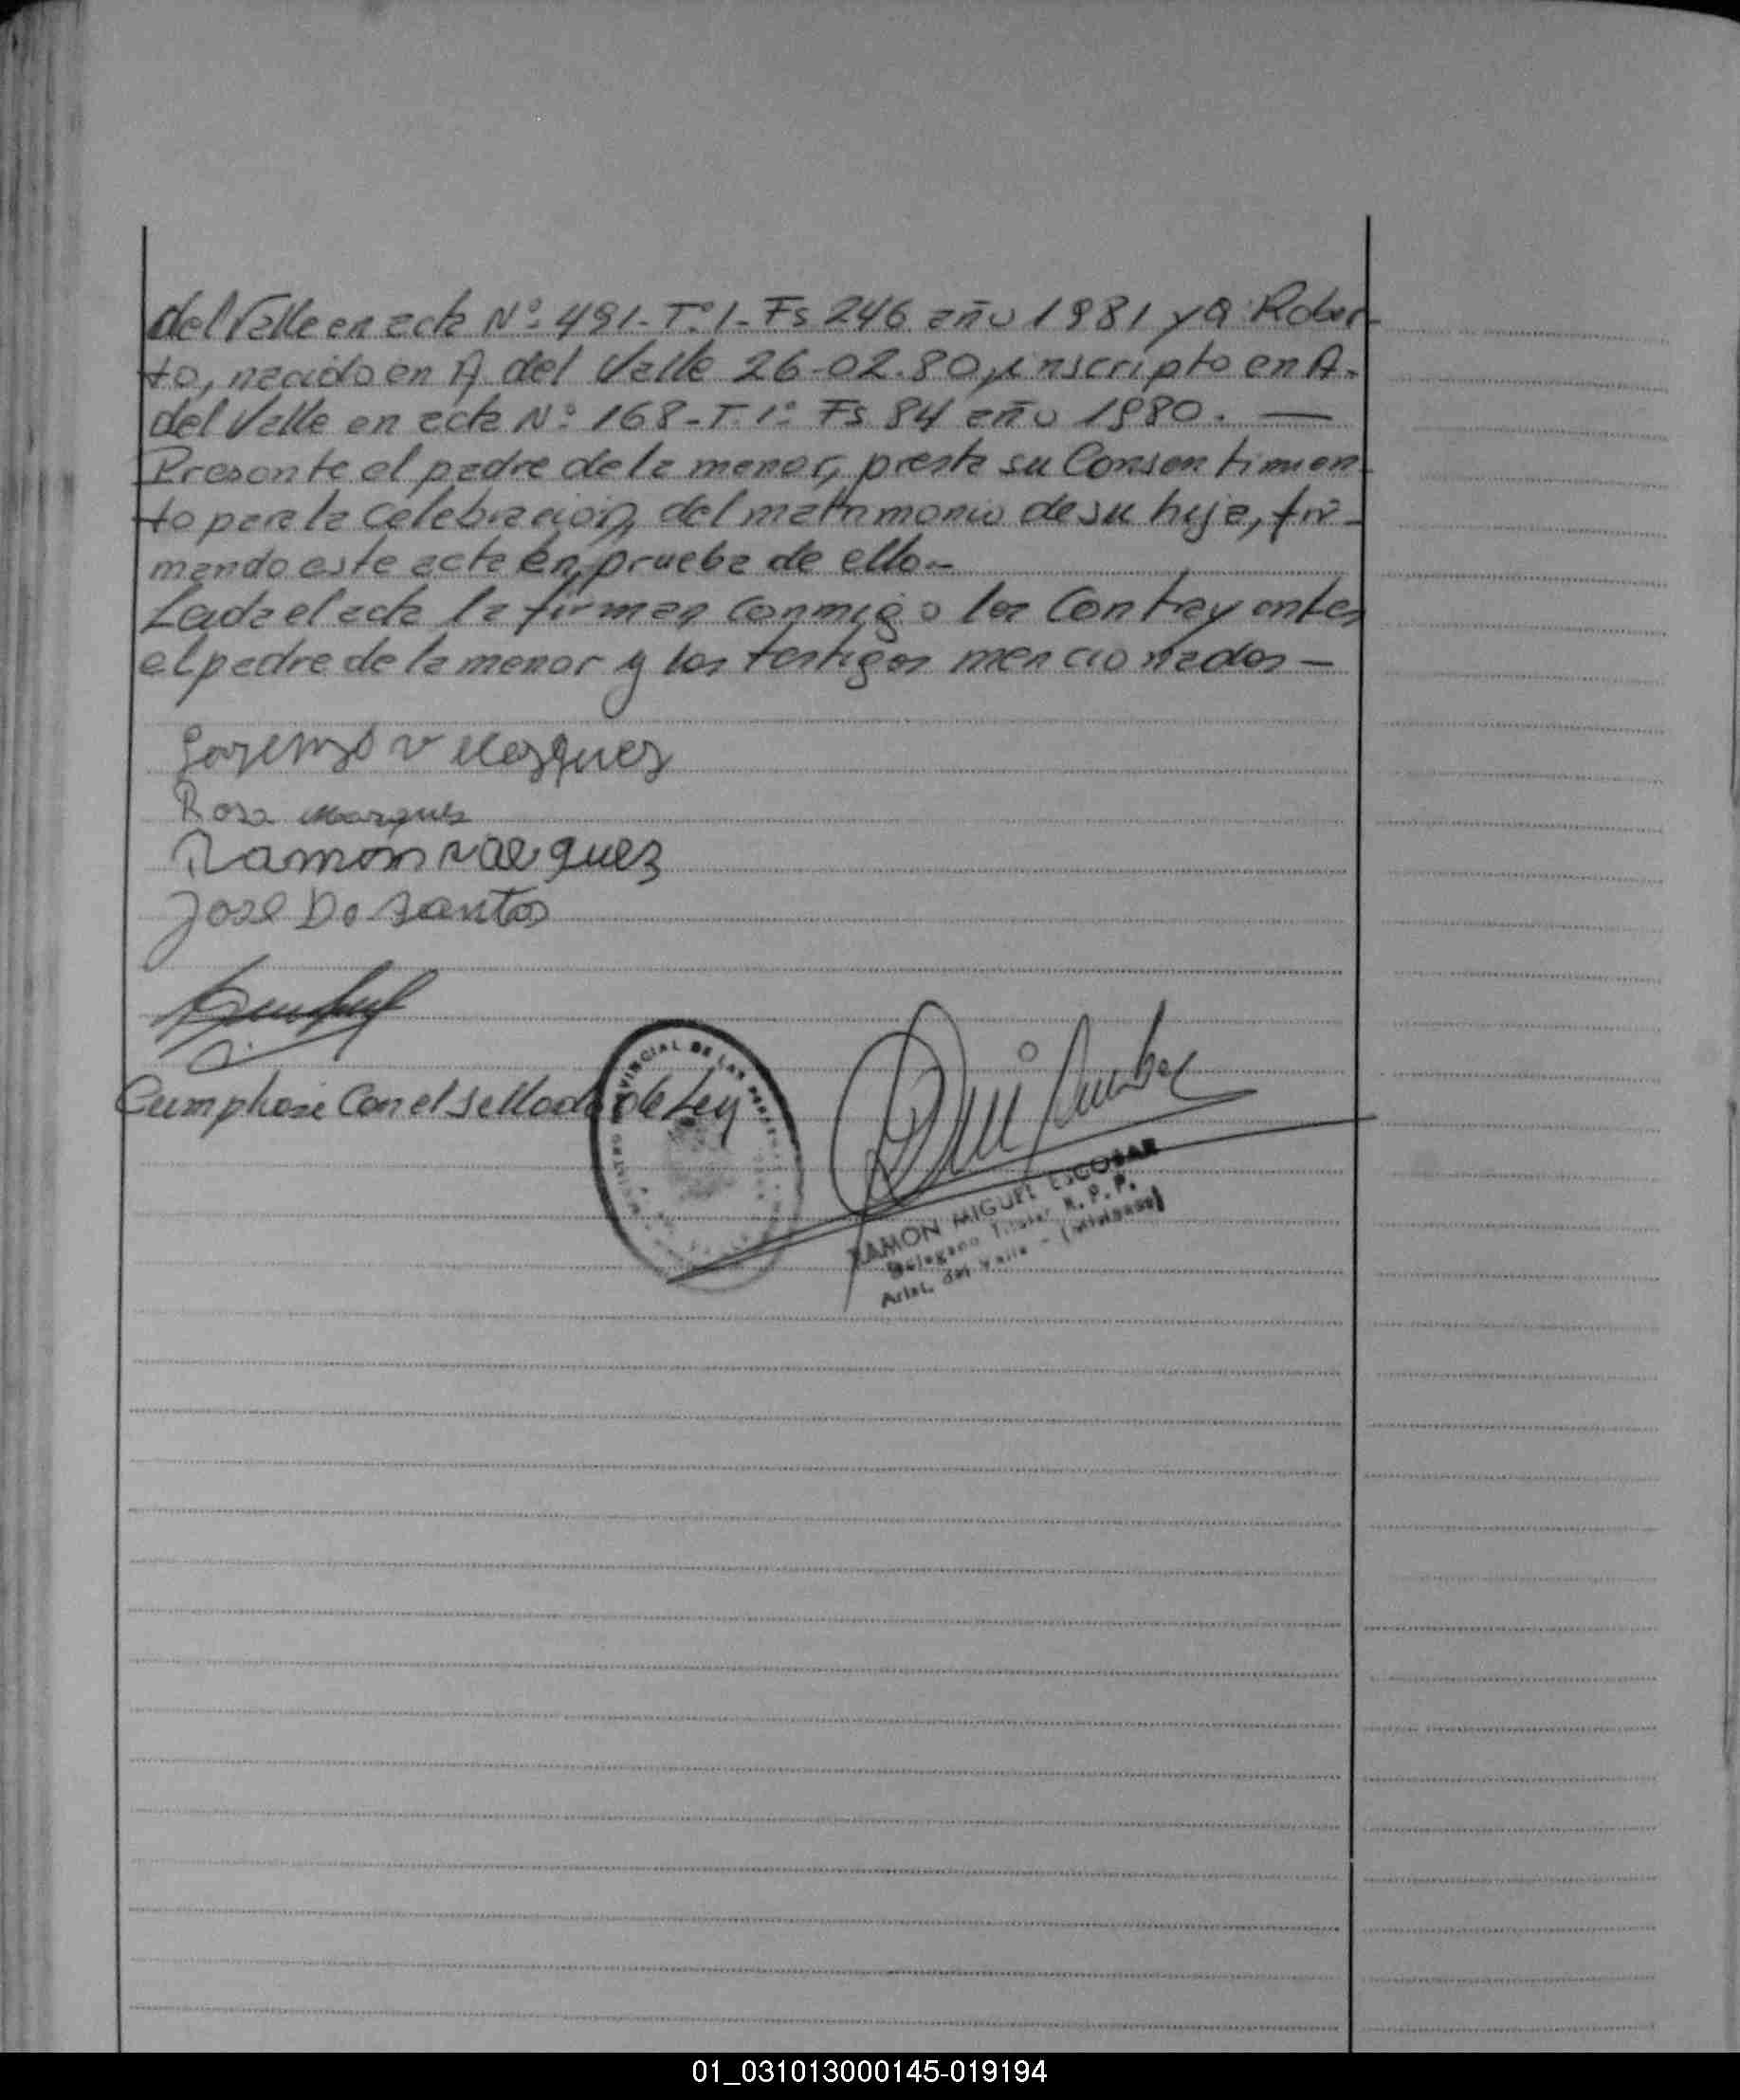 del Valle en acta Nº: 491- Tº1- Fs 246 año 1981 y a Rober-
to, nacido en A. del Valle 26-02.80, inscripto en A-
del Valle en acta Nº: 168-T.1º Fs 84 año 1980. —
Presente el padre de la menor, presta su Consentimien-
to para la celebración, del matrimonio de su hija, fir-
mando este acta en, prueba de ello.-
Leida el acta la firman conmigo los Contrayentes
el padre de la menor y los testigos mencionados —
Rosa Marques
Ramon
Jose Do Santos
Cumplose Con el sellado de Ley
PROVINCIAL DE LAS
RAMON MIGUEL ESCOBAR
Delegado Titular R. P. P.
Arist. del Valle - (Misiones)
01_031013000145-019194